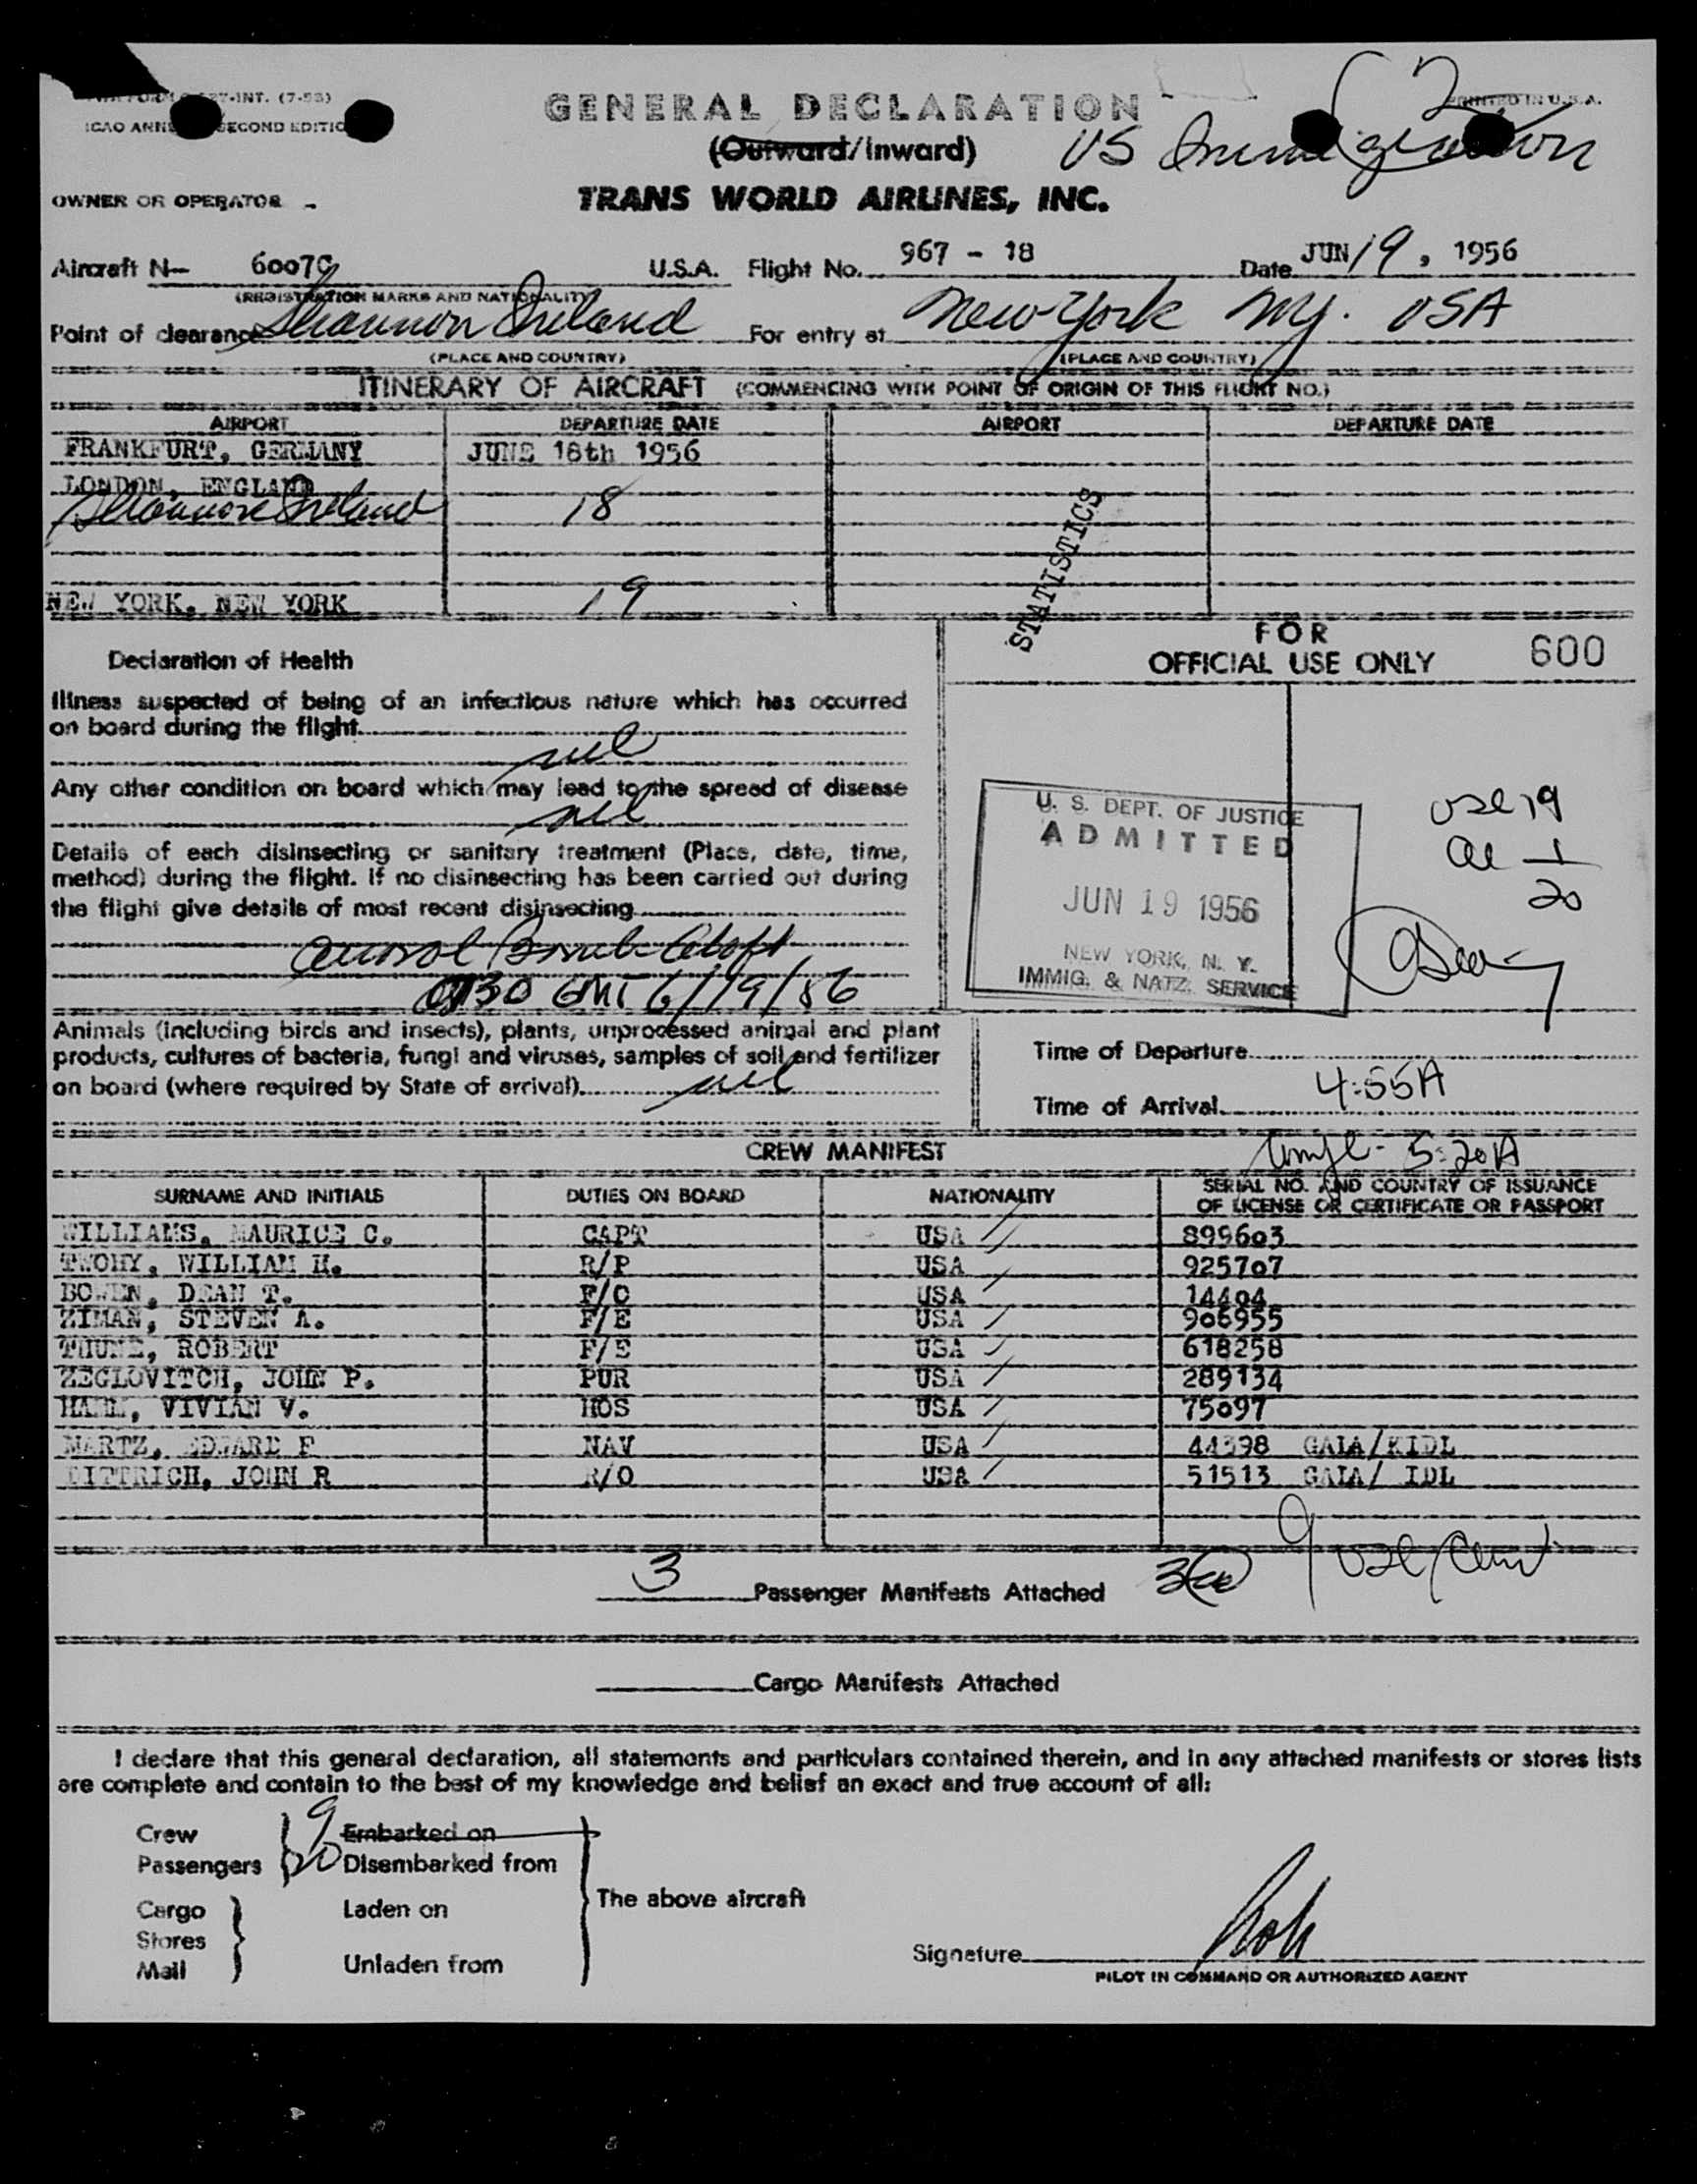 -INT. (7-53)
GENERAL DECLARATION
PRINTED IN U.S.A.
ICAO ANNE SECOND EDITIO
(Outward/Inward) US Immigration
OWNER OR OPERATOR - TRANS WORLD AIRLINES, INC.
Aircraft N- 6007C U.S.A. Flight No. 967 - 18 Date JUN 19, 1956
(REGISTRATION MARKS AND NATIONALITY)
Point of clearance Shannon Ireland For entry at New York NY. USA
(PLACE AND COUNTRY) (PLACE AND COUNTRY)
ITINERARY OF AIRCRAFT (COMMENCING WITH POINT OF ORIGIN OF THIS FLIGHT NO.)
AIRPORT DEPARTURE DATE AIRPORT DEPARTURE DATE
FRANKFURT, GERMANY JUNE 18th 1956
LONDON, ENGLAND
Shannon Ireland 18
STATISTICS
NEW YORK, NEW YORK 19
Declaration of Health
Illness suspected of being of an infectious nature which has occurred
on board during the flight
nil
Any other condition on board which may lead to the spread of disease
nil
Details of each disinsecting or sanitary treatment (Place, date, time,
method) during the flight. If no disinsecting has been carried out during
the flight give details of most recent disinsecting
Aerosol Bomb Aloft
0730 GMT 6/19/56
Animals (including birds and insects), plants, unprocessed animal and plant
products, cultures of bacteria, fungi and viruses, samples of soil and fertilizer
on board (where required by State of arrival) nil
FOR
OFFICIAL USE ONLY 600
U. S. DEPT. OF JUSTICE
ADMITTED
JUN 19 1956
NEW YORK, N. Y.
IMMIG. & NATZ. SERVICE
usc 19
al 1
20
Time of Departure
Time of Arrival 4:55A
5:20A
CREW MANIFEST
SURNAME AND INITIALS DUTIES ON BOARD NATIONALITY SERIAL NO. AND COUNTRY OF ISSUANCE
OF LICENSE OR CERTIFICATE OR PASSPORT
WILLIAMS, MAURICE C. CAPT USA 899603
TWOHY, WILLIAM H. R/P USA 925707
BOWEN, DEAN T. F/O USA 14494
ZIMAN, STEVEN A. F/E USA 906955
THUNE, ROBERT F/E USA 618258
ZEGLOVITCH, JOHN P. PUR USA 289134
VIVIAN V. HOS USA 75097
MARTZ, EDWARD F NAV USA 44398 GAIA/KIDL
DITTRICH, JOHN R R/O USA 51513 GAIA/ IDL
9 usc/crew
3 Passenger Manifests Attached 3
Cargo Manifests Attached
I declare that this general declaration, all statements and particulars contained therein, and in any attached manifests or stores lists
are complete and contain to the best of my knowledge and belief an exact and true account of all:
Crew 9 Embarked on
Passengers 20 Disembarked from
Cargo Laden on The above aircraft
Stores
Mail Unladen from
Signature
PILOT IN COMMAND OR AUTHORIZED AGENT